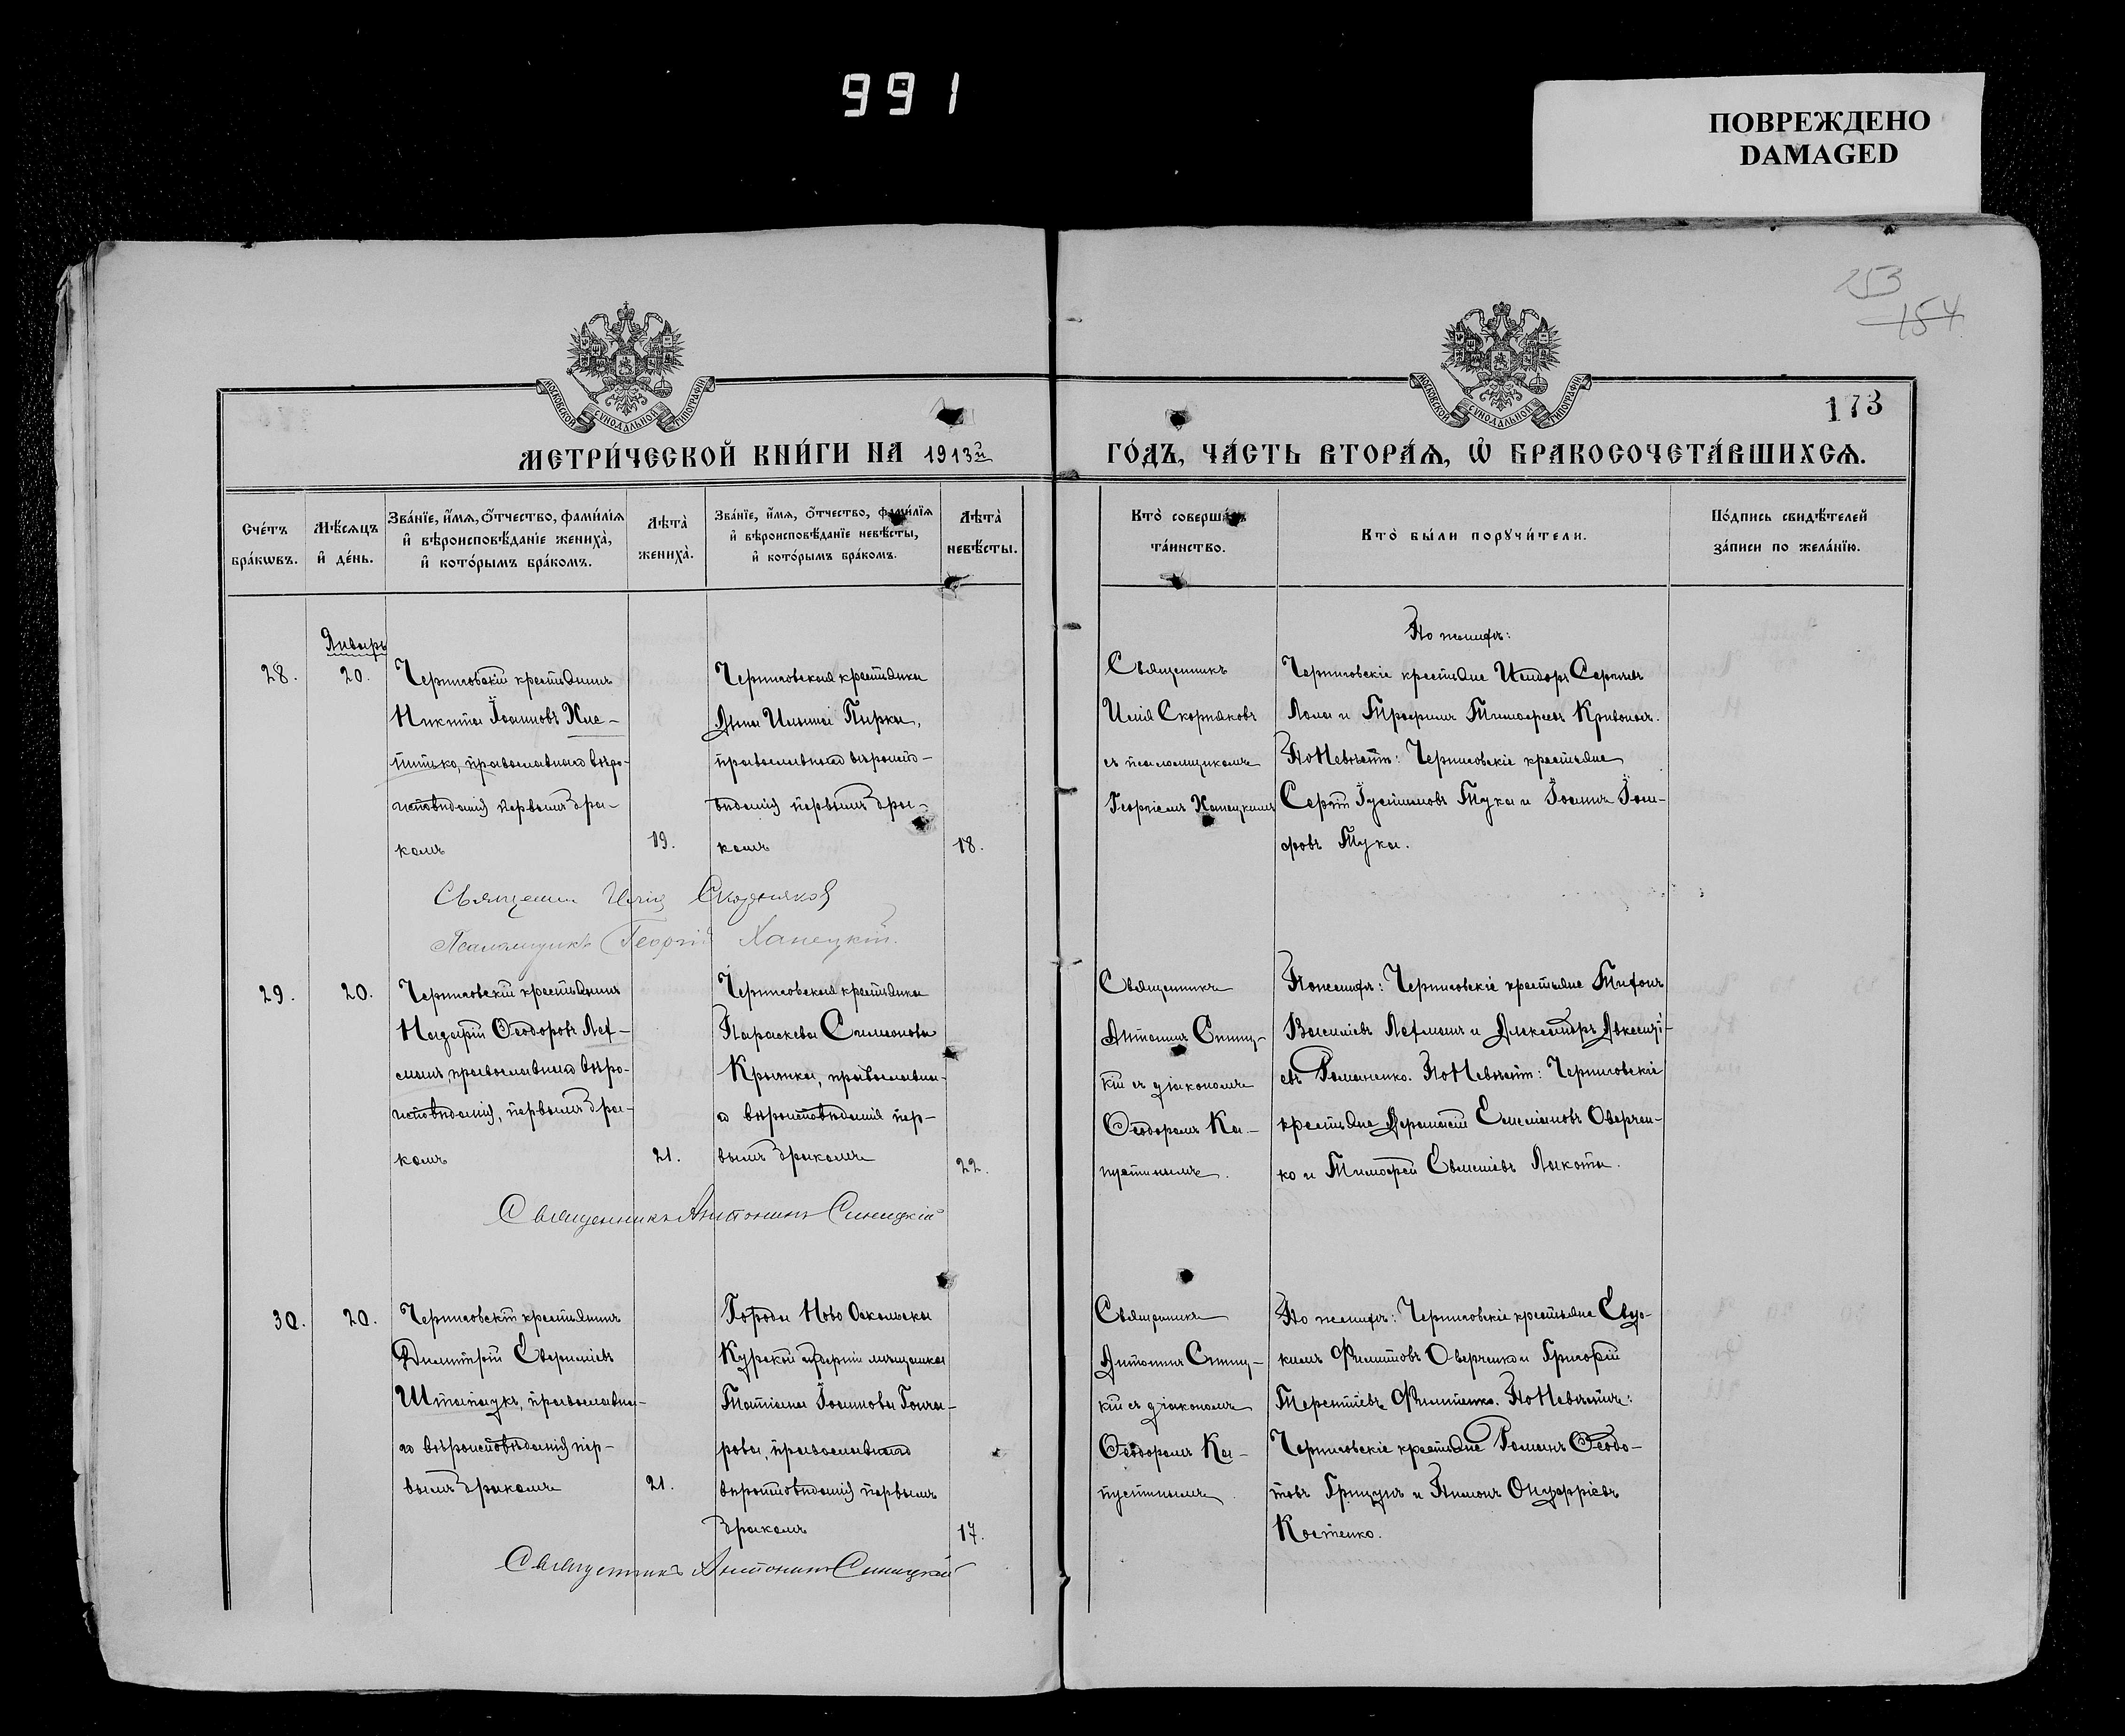 991
ПОВРЕЖДЕНО
DAMAGED
253
154
173
МОСКОВСКОЙ СѴНОДАЛЬНОЙ ТИПОГРАФІИ
МОСКОВСКОЙ СѴНОДАЛЬНОЙ ТИПОГРАФІИ
МЕТРИ́ЧЕСКОЙ КНИ́ГИ НА 1913й
ГО́ДЪ, ЧА́СТЬ ВТОРА́Ѧ, Ѡ҆ БРАКОСОЧЕТА́ВШИХСѦ.
Сче́тъ бра́кѡвъ.
Мѣ́сяцъ и҆ де́нь.
Зва́нїе, и҆́мѧ, ѻ҆́тчество, фами́лїѧ
и҆ вѣроисповѣ́данїе жениха̀,
и҆ кото́рымъ бра́комъ.
Лѣта̀ жениха̀.
Зва́нїе, и҆́мѧ, ѻ҆́тчество, фами́лїѧ
и҆ вѣроисповѣ́данїе невѣ́сты,
и҆ кото́рымъ бра́комъ.
Лѣта̀ невѣ́сты.
Кто̀ соверша́лъ
та́инство.
Кто̀ бы́ли порꙋчи́тели.
По́дпись свидѣ́телей
за́писи по жела́нїю.
Январь
28.
20.
Черниговскій крестьянинъ
Никита Іоанновъ
православнаго вѣро-
исповѣданія первымъ бра-
комъ
19.
Черниговская крестьянка
Анна Ильина Пирка,
православнаго вѣроиспо-
вѣданія первымъ бра-
комъ
18.
Священникъ
Илія Скорняковъ
съ псаломщикомъ
Георгіемъ Ханецкимъ
По женихѣ:
Черниговскіе крестьяне Исидоръ Сергіевъ
Лола и Трофимъ Тимофеевъ Кривонос.
По Невѣстѣ: Черниговскіе крестьяне
Сергій Іустиновъ Тука и Іоаннъ
Тука.
Священник Илія Скорняков
Псаломщикъ Георгій Ханецкій.
29.
20.
Черниговскій крестьянинъ
Назарій Ѳеодоровъ Леф-
православнаго вѣро-
исповѣданія, первымъ бра-
комъ
21.
Черниговская крестьянка
Параскева Симеонова
православна-
го вѣроисповѣданія пер-
вымъ бракомъ
22.
Священникъ
Антонинъ Синиц-
кій съ діакономъ
Ѳеодоромъ Ка-
пустинымъ.
По женихѣ: Черниговскіе крестьяне Тифонъ
Василіевъ и Александръ Авксенті-
евъ Романенко. По Невѣстѣ: Черниговскіе
крестьяне Емеліановъ Оверчен-
ко и Тимофей Лакота.
Священникъ Антонинъ Синицкій
30.
20.
Черниговскій крестьянинъ
Димитрій
православна-
го вѣроисповѣданія пер-
вымъ бракомъ
21.
Города Ново Оскольска
Курской губерніи мѣщанка
Татіана Іоаннова Гонча-
рова, православнаго
вѣроисповѣданія первымъ
бракомъ
17.
Священникъ
Антонинъ Синиц-
кій съ діакономъ
Ѳеодоромъ Ка-
пустинымъ
По женихѣ: Черниговскіе крестьяне Евдо-
кимъ Филиповъ Оверченко и Григорій
Терентіевъ Филипенко. По Невѣстѣ:
Черниговскіе крестьяне Романъ Ѳеодо-
товъ Грицунъ и Пименъ Онуфріевъ
Костенко.
Священникъ Антонинъ Синицкій